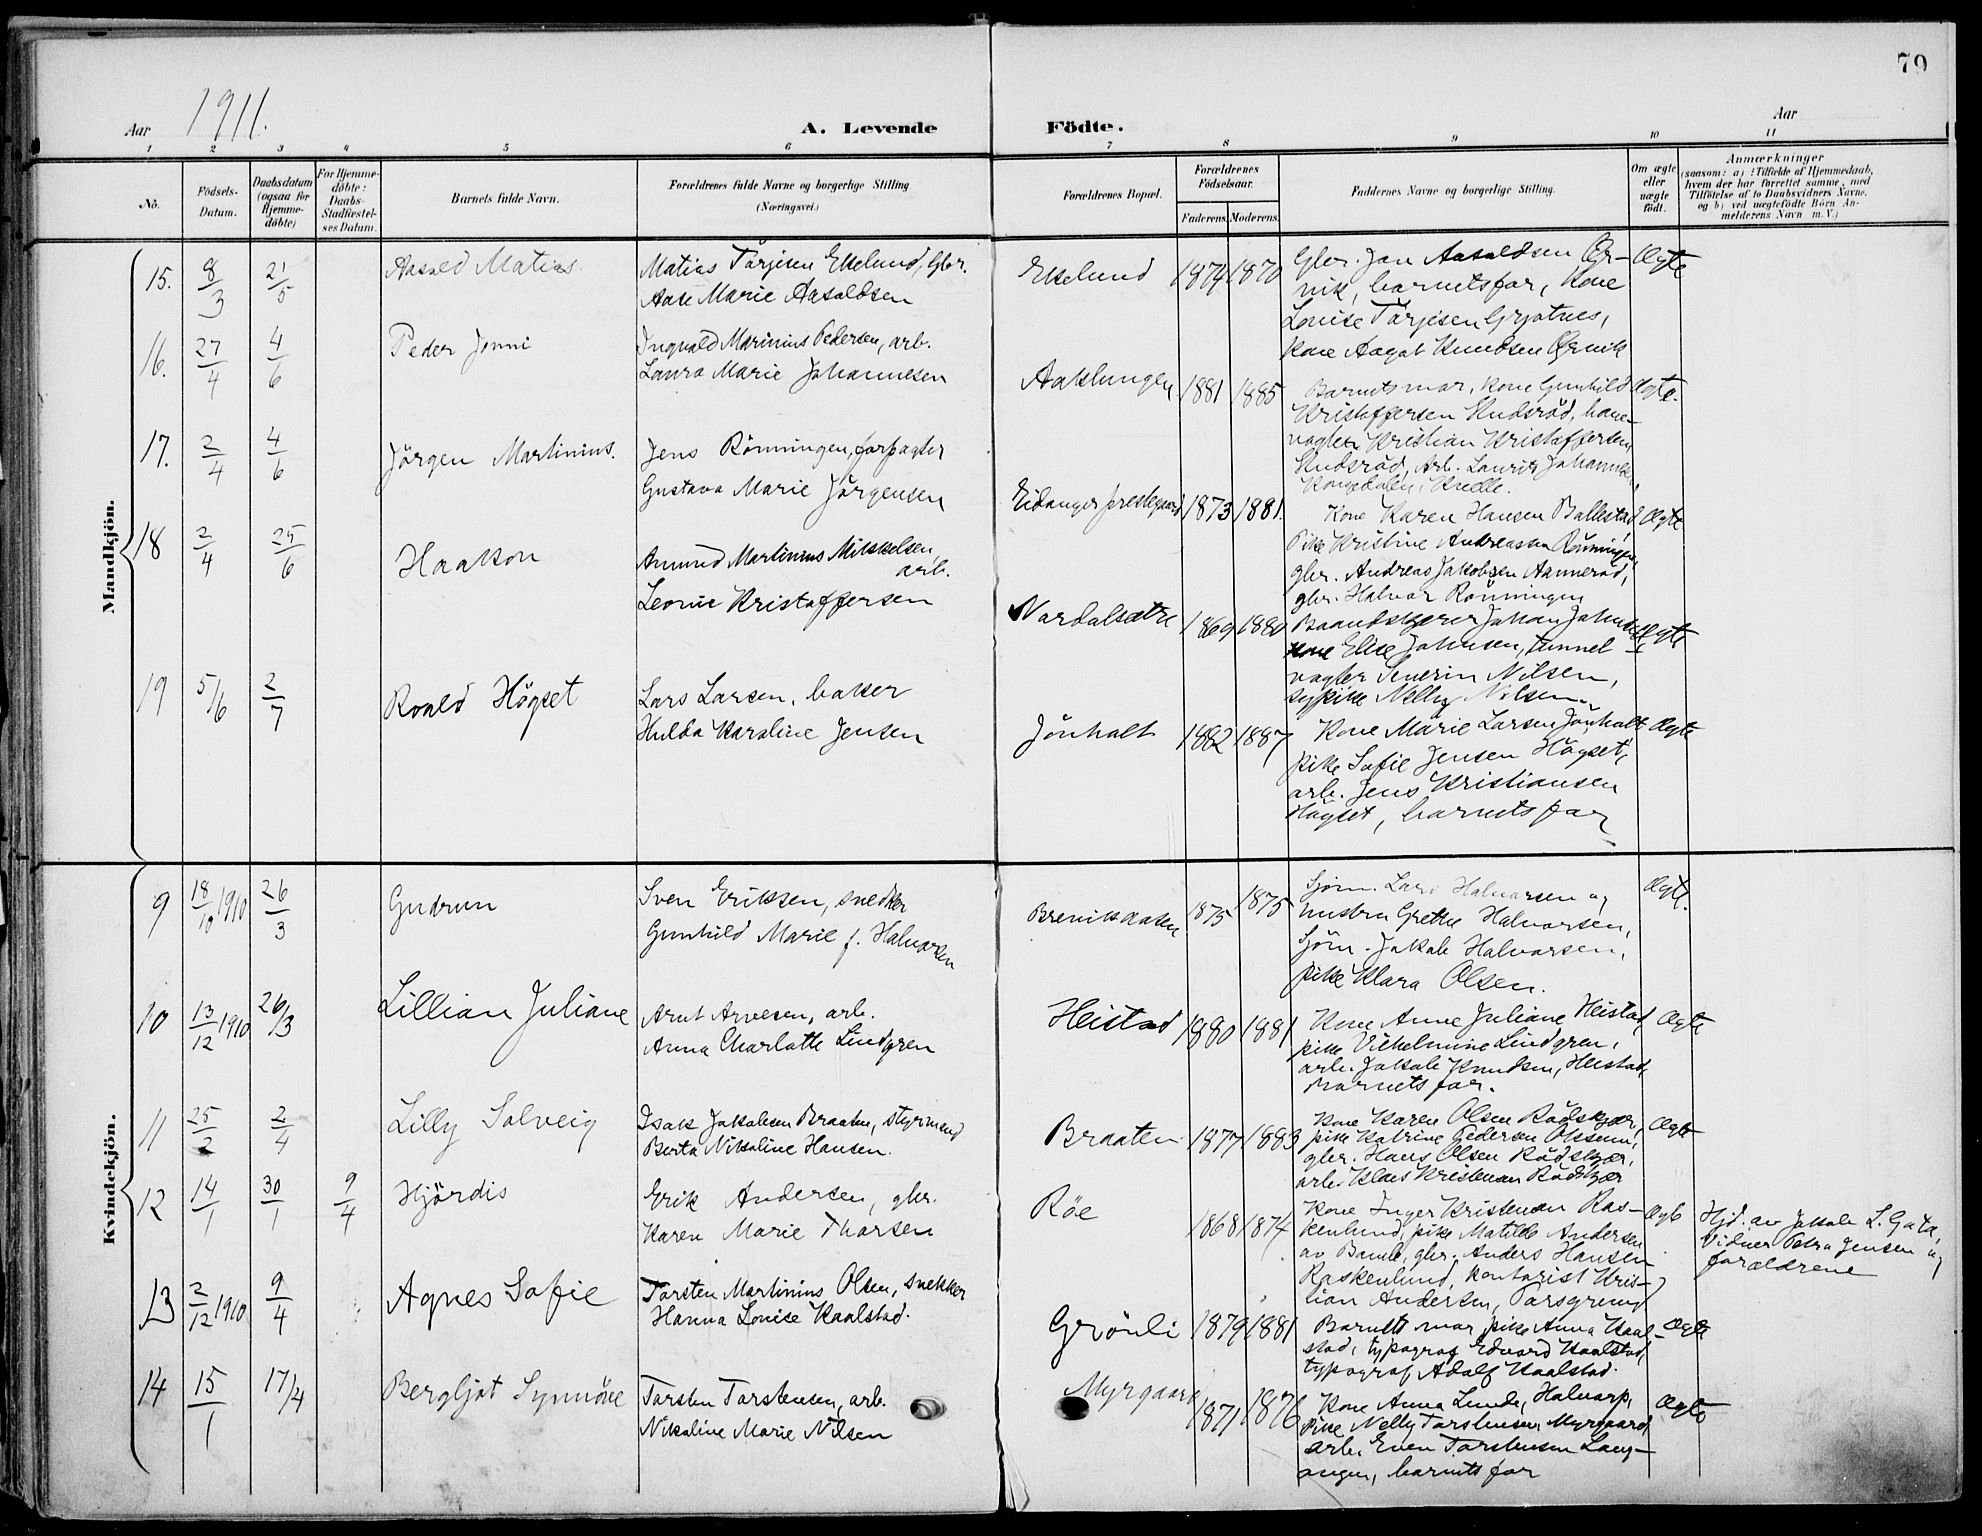 79
Aar 1911.
A. Levende Födte.
Aar
1 2 3 4 5 6 7 8 9 10 11
No.
Födsels-Datum.
Daabsdatum (ogsaa for Hjemme-döbte)
For Hjemme-döbte: Daabs-Stadfæstel-ses Datum.
Barnets fulde Navn.
Forældrenes fulde Navne og borgerlige Stilling (Næringsvei.)
Forældrenes Bopæl.
Forældrenes Födselsaar.
Faderens. Moderens.
Faddernes Navne og borgerlige Stilling.
Om ægte eller uægte födt.
Anmærkninger
(saasom: a) i Tilfælde af Hjemmedaab, hvem der har forrettet samme, med Tilföielse af to Daabsvidners Navne. og b) ved uægtefödte Börn An-melderens Navn m.V.)
Mandkjön.
15. 8/3 21/5 Aasold Matias.
Matias Tarjesen Ekelund, gbr.
Aase Marie Aasoldsen
Ekelund 1874 1870
Gbr. Jan Aasoldsen Ør-
vik, barnets far, kone
Louise Tarjesen Grjotnes,
kone Aagot Knudsen Ørvik
Ægte
16. 27/4 4/6 Peder Jonni
Ingvald Marinius Pedersen, arb.
Laura Marie Johannesen
Aaklungen 1881 1885
Barnets mor, kone Gunhild
Kristoffersen Skudsröd, bane-
vogter Kristian Kristoffersen
Skudsröd, Arb. Laurits Johannesen,
Ægte.
17. 2/4 4/6 Jörgen Martinius.
Jens Rönningen, forpagter
Gustava Marie Jörgensen
Eidanger prestegaard 1873 1881.
Kone Karen Hansen Ballestad,
Pike Kristine Andreassen Rönningen,
gbr. Andreas Jakobsen Aanneröd,
gbr. Halvor Rönningen
Ægte
18 2/4 25/6 Haakon
Amund Martinius Mikkelsen,
arb.
Leonie Kristoffersen
Nordalsætre 1869 1880
Baandskjærer Johan Johnsen,
kone Elise Johnsen, tunnel-
vagter Severin Nilsen,
sypike Nelly Nilsen.
Ægte
19 5/6 2/7 Roald Högset
Lars Larsen, baker
Hulda Karoline Jensen
Jönholt 1882 1887
Kone Marie Larsen Jönholt
pike Sofie Jensen Högset,
arb. Jens Kristiansen
Högset, barnets far
Ægte
Kvindekjön.
9 18/10 1910 26/3 Gudrun
Sven Eriksen, snedker
Gunhild Marie f. Halvorsen
1875 1875
Sjöm. Lars Halvorsen og
hustru Grethe Halvorsen,
Sjöm. Jakob Halvorsen,
pike Klara Olsen.
Ægte.
10 13/12 1910 26/3 Lillian Juliane
Arnt Arvesen, arb.
Anna Charlotte Lindgren
Heistad 1880 1881
Kone Anne Juliane Heistad,
pike Vilhelmine Lindgren,
arb. Jakob Knudsen, Heistad,
Barnets far.
Ægte
11 25/2 2/4 Lilly Solveig
Isak Jakobsen Braaten, styrmand
Berta Nikoline Hansen.
Braaten 1877 1883
Kone Karen Olsen Rödskjær,
pike Katrine Pedersen
gbr. Hans Olsen Rödskjær,
arb. Klaes Kristensen Rödskjær
Ægte
12 14/1 30/1 9/4 Hjördis
Erik Andersen, gbr.
Karen Marie Thorsen
Röe 1868 1874
Kone Inger Kristensen Ras-
kenlund, pike Matilde Andersen
av Bamle, gbr. Anders Hansen
Raskenlund, kontorist Kris-
tian Andersen, Porsgrund
Ægte
Hjd. av Jakob L. Gata,
Vidner Petra Jensen og
forældrene
13 2/12 1910 9/4 Agnes Sofie
Torsten Martinius Olsen, snekker
Hanna Louise Kaalstad.
Grönli 1879 1881
Barnets mor, pike Anna Kaal-
stad, typograf Edvard Kaalstad,
typograf Adolf Kaalstad.
Ægte
14 15/1 17/4 Bergljot Synnöve
Torsten Torstensen, arb.
Nikoline Marie Nilsen
Myrgaard 1871 1876
Kone Anna Lunde, Halvarp,
Pike Nelly Torstensen, Myrgaard,
arb. Even Torstensen Lang-
angen, barnets far
Ægte